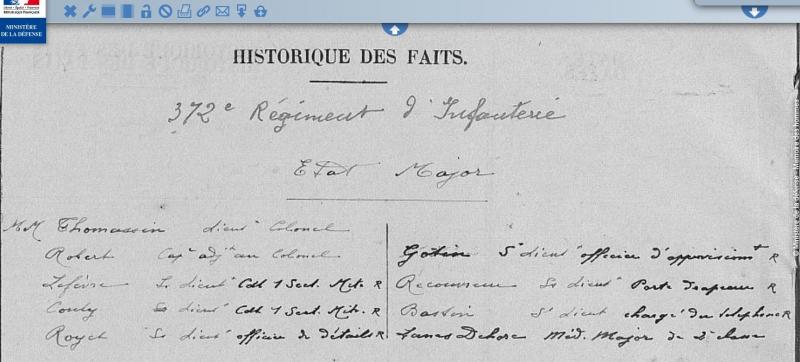 MINISTÈRE
DE LA DÉFENSE
HISTORIQUE DES FAITS.
372e Régiment d'Infanterie
Etat Major
MM Thomassin Lieut Colonel
Robert Cap adj au Colonel
Lefèvre Ss Lieut Cdt 1 Sect. Mit. R
Conty Ss Lieut Cdt 1 Sect. Mit. R
Royet Ss Lieut officier de détails R
Gotin Ss Lieut officier d'approvisionnt R
Récouvreur Ss Lieut Porte drapeau R
Baston Ss Lieut chargé du téléphone R
Méd. Major de 2e classe